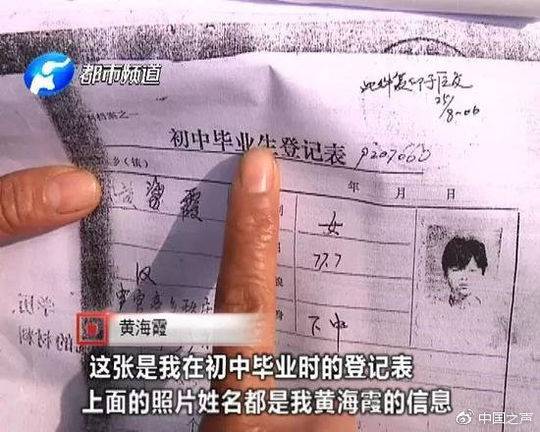 都市频道
此件复印于区交
25/8-06
档案之一
初中毕业生登记表
p207660
乡(镇)
年 月 日
黄海霞
女
汉
77.7
下中
黄海霞
这张是我在初中毕业时的登记表
上面的照片姓名都是我黄海霞的信息
中国之声